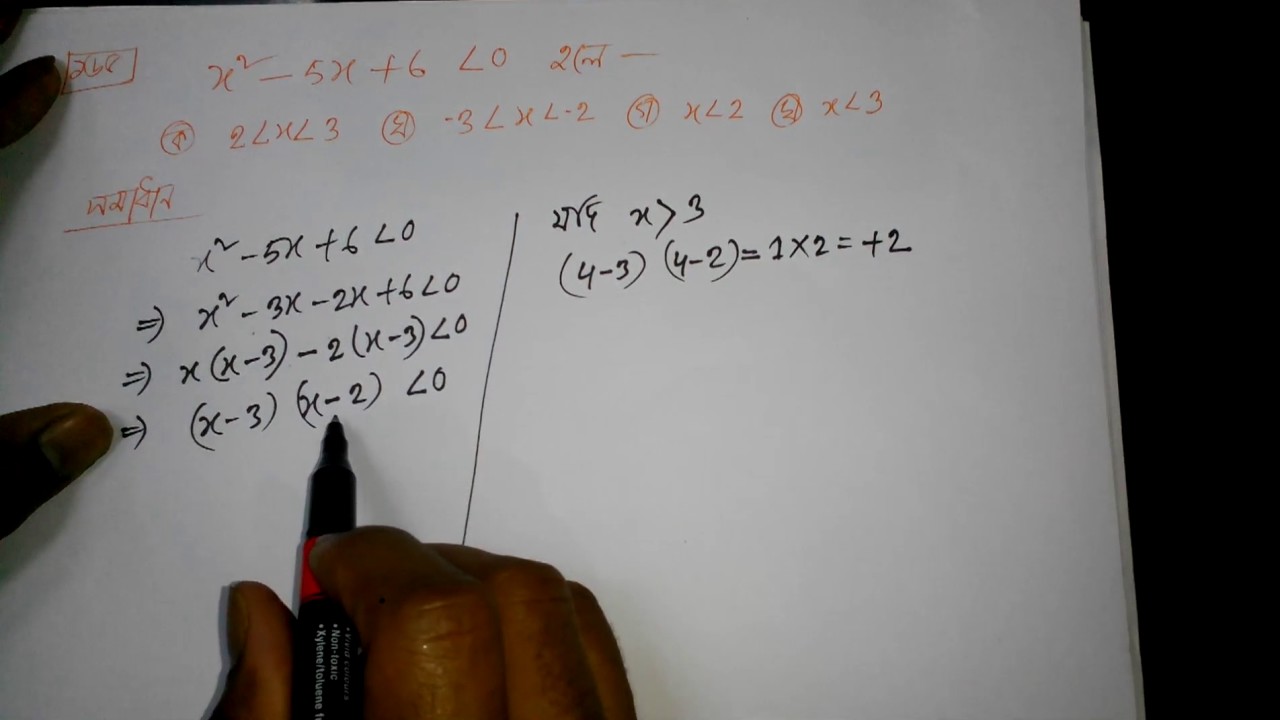 x² - 5x + 6 < 0 হলে —
ক 2 < x < 3 খ -3 < x < -2 গ x < 2 ঘ x < 3
সমাধান
x² - 5x + 6 < 0
⇒ x² - 3x - 2x + 6 < 0
⇒ x (x - 3) - 2 (x - 3) < 0
⇒ (x - 3) (x - 2) < 0
যদি x > 3
(4 - 3) (4 - 2) = 1 × 2 = + 2
• Non-toxic
• Xylene/toluene